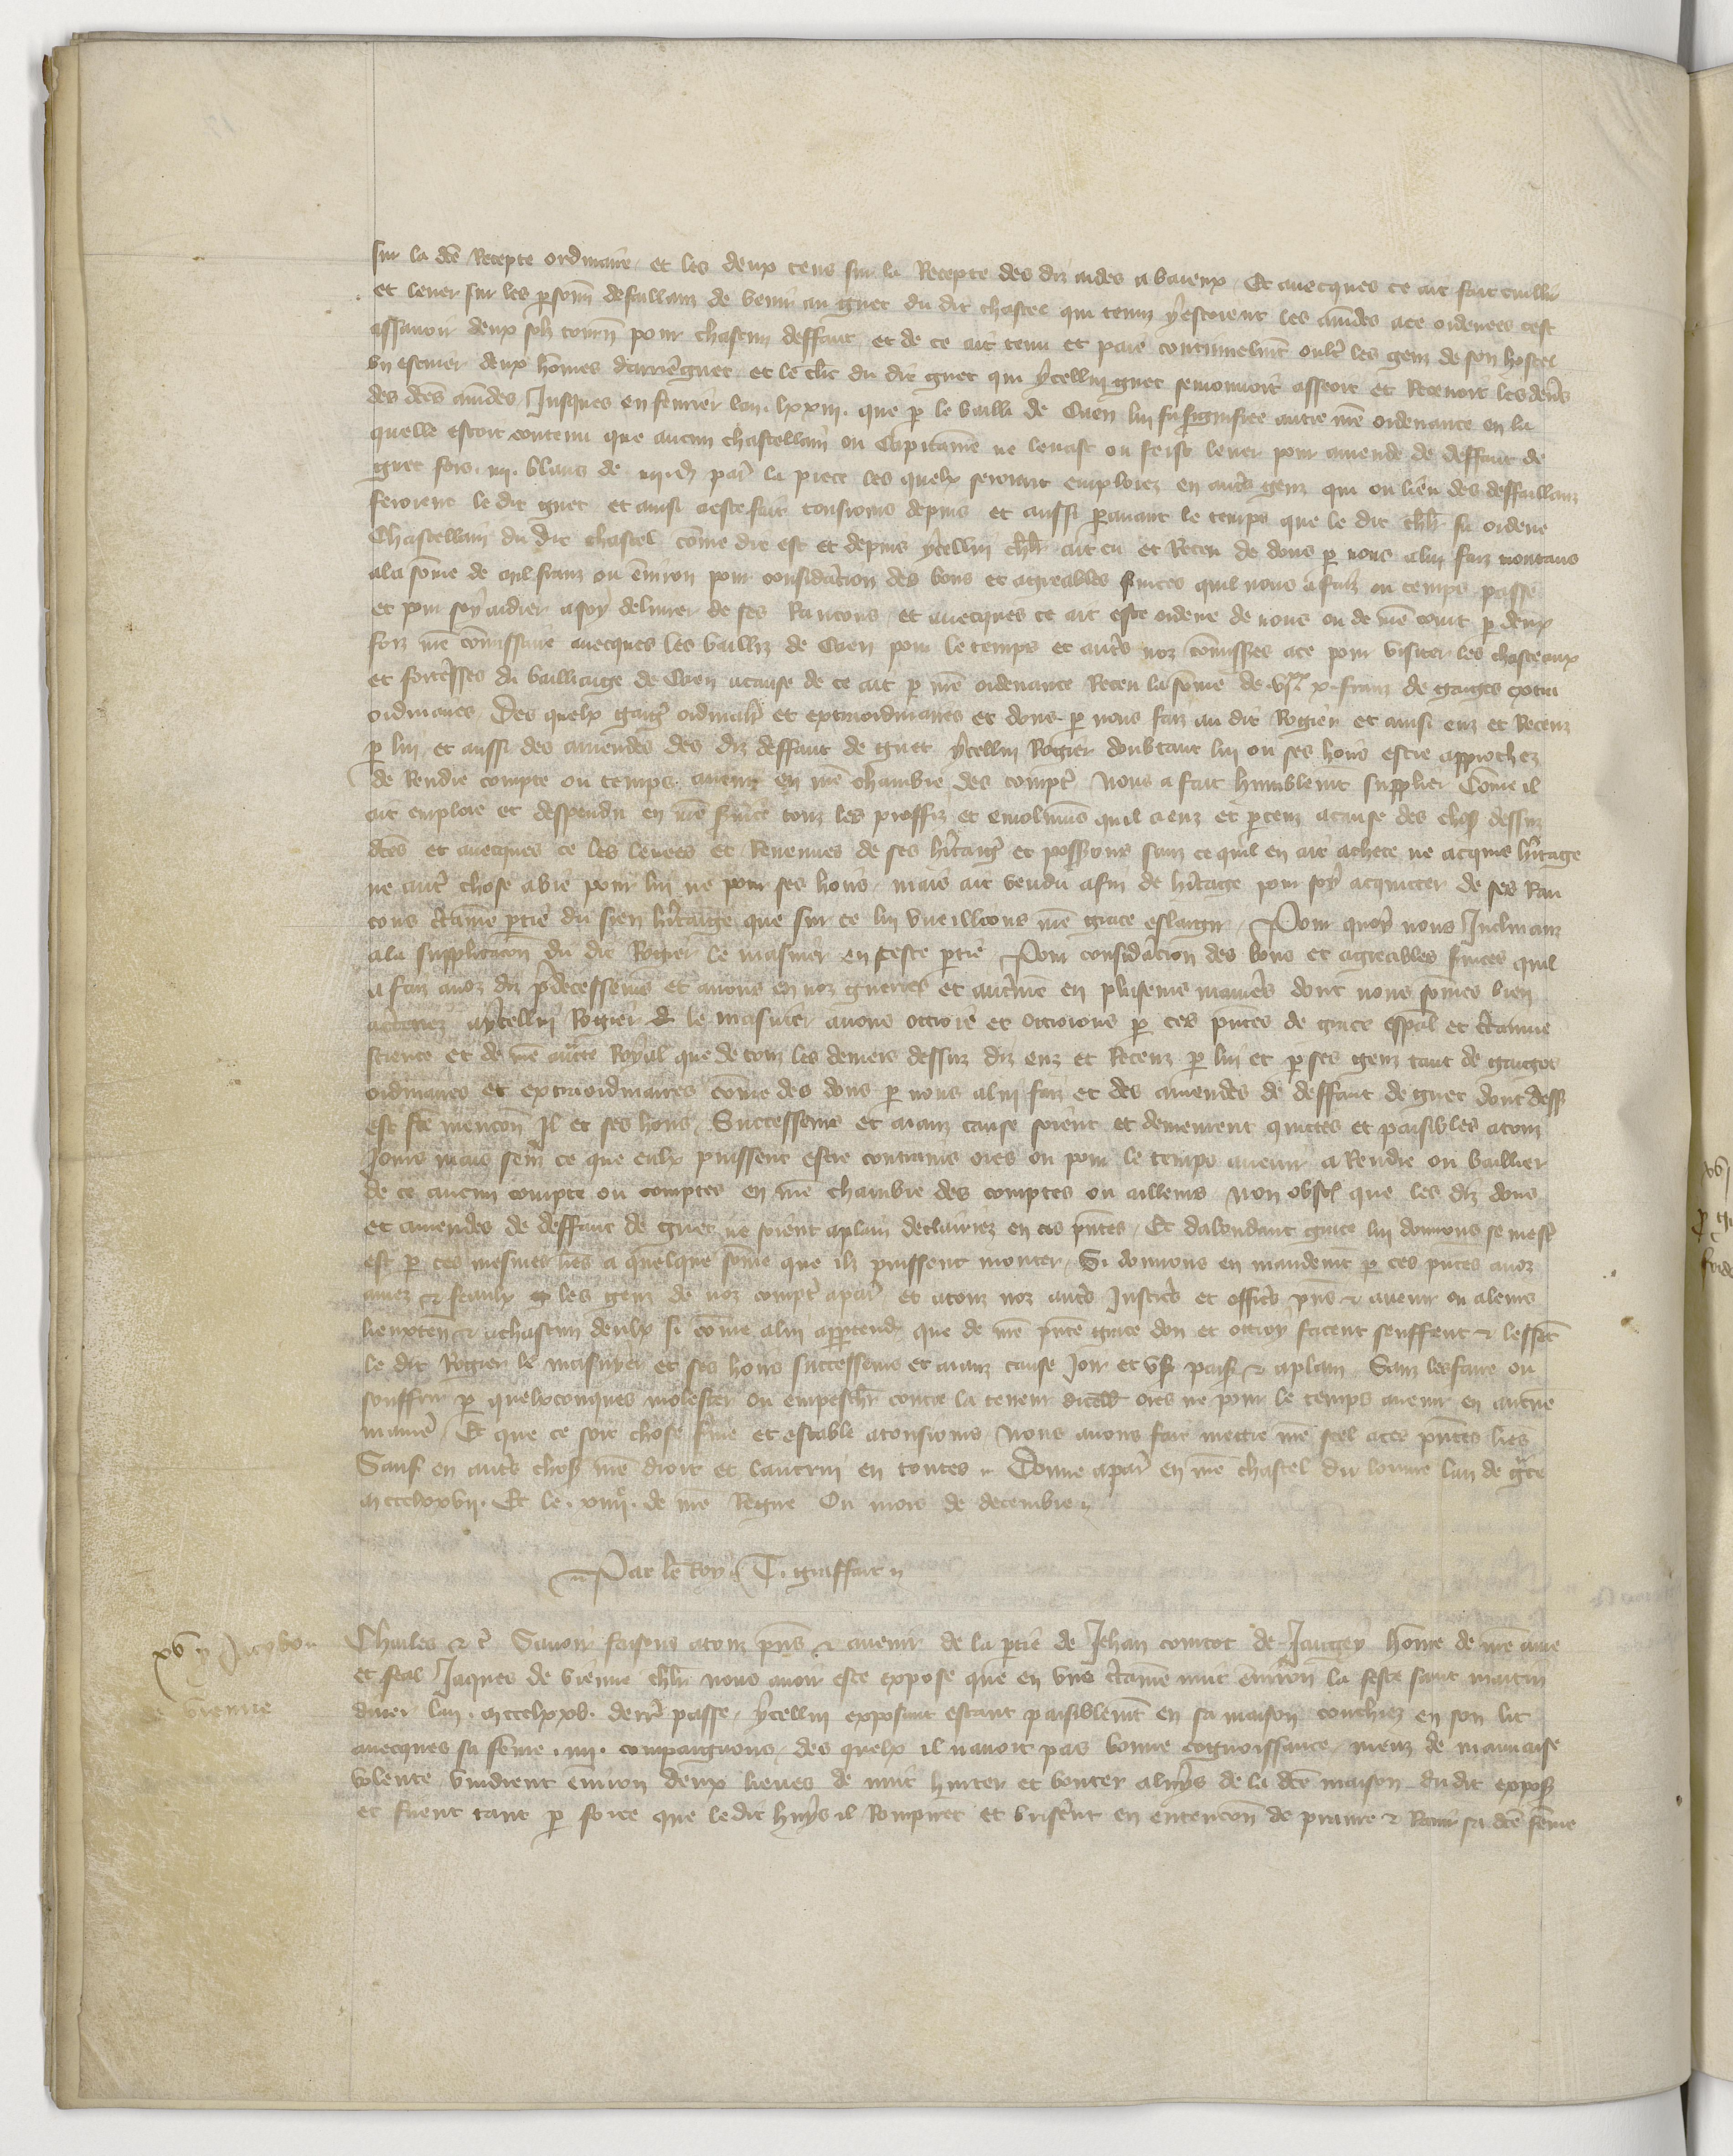 sur la dce Recepte ordinaire et les deux cens sur la Recepte des diz aides a baieux Et avecques ce ait fait cuillir
et lever sur les personn defaillanz de venir au guet du dit chastel qui tenuz y estoient les amdes ace ordenees cest
assavoir deux solz tourn pour chascun deffaut et de ce ait tenu et paie continuelmt oultr les genz de son hostel
un escuier deux homes darrereguet et le clerc du dit guet qui ycellui guet semonnoit asseoit et Recevoit les deners
des dces amdes Jusques en fevrier lan lxxiii que p le bailli de Caen lui fu signifiee autre nre ordenance en la
quelle estoit contenu que aucun chastellain ou Capitaine ne levast ou feist lever pour amende de deffaut de
guet fors iii blans de iiii d par la piece les quelx seroient emploiez en autrs genz qui ou lieu des deffaillanz
feroient le dit guet et ainsi a este fait tousjours depuis et aussi pavant le temps que le dit chlr fu ordene
Chastellain du dit chastel come dit est et depuis ycellui chlr ait eu et Receu de dons p nous alui faiz montans
ala some de mil franz ou environ pour consideracion des bons et agreables services quil nous a faiz ou temps passe
et pour soy aidier a soy delivrer de ses Rancons et avecques ce ait este ordene de nous ou de nre court p deux
foiz nre comissaire avecques les bailliz de Caen pour le temps et autrs noz comisses ace pour visiter les chasteaux
et forteresses du bailliage de Caen acause de ce ait p nre ordenance Receu la some de x franz de gaiges extra
ordinaires Des quelx gaigs ordinairs et extraordinaires et dons p nous faiz au dit Rogier et ainsi euz et Receuz
p lui et aussi des amendes des diz deffaut de guet ycellui Rogier doubtant lui ou ses hoirs estre approchez
de Rendre compte ou temps avenir en nre chambre des compts Nous a fait humblemt supplier Come il
ait emploie et despendu en nre service touz les proffiz et emolumens quil a euz et pceuz acause des choses dessuz
dces et avecques ce les levees et Revenues de ses heritaigs et possessions sanz ce quil en ait achete ne acquis heritage
ne autr chose a vie pour lui ne pour ses hoirs mais ait vendu afin de heritage pour soy acquitter de ses Ran
cons certaine ptie du sien heritaige que sur ce lui vueillions nre grace eslargir Pour quoy nous Inclinanz
ala supplicacion du dit Rogier le masuier en ceste ptie Pour consideracion des bons et agreables services quil
a faiz anoz diz predecesseurs et a nous en noz guerres et autrement en pluseurs manieres dont nous somes bien
acertenez aycellui Rogier le masuier avons ottroie et ottroions p ces pntes de grace espal et certaine
science et de nre auctte Royal que de touz les deniers dessuz diz euz et Receuz p lui et p ses genz tant de gaiges
ordinaires et extraordinaires come des dons p nous alui faiz et des amendes de deffaut de guet dont dess
est fte mencon Il et ses hoirs Successeurs et aianz cause soient et demeurent quittes et paisibles atouz
Jours mais senz ce que eulx puissent estre contrains ores ou pour le temps avenir a Rendre ou baillier
de ce aucun compte ou comptes en nre chambre des comptes ou ailleurs Non obst que les diz dons
et amendes de deffaut de guet ne soient aplain declairiez en ces pntes Et dabondant grace lui donnons se mest
est p ces mesmes lres a quelque some que ilz puissent monter Si donnons en mandemt p ces pntes anoz
amez et feaulx les genz de noz compts apar et atouz noz autrs Justics et offics pns et avenir ou aleurs
lieuxten et achascun deulx si come alui appartendr que de nre pnte grace don et ottroy facent seuffrent et lessent
le dit Rogier le masuyer et ses hoirs successeurs et aianz cause Jouir et user paisi et aplain Sanz les faire ou
souffrir p quelxconques molester ou empeschr contre la teneur dicell ores ne pour le temps avenir en aucune
manier Et que ce soit chose ferme et estable atousjours Nous avons fait mettre nre scel aces pntes lres
Sauf en autrs choses nre droit et lautrui en toutes Donne apar en nre chastel du louvre lan de grce
m ccclxxvii Et le xiiii de nre Regne Ou mois de decembre
Par le Roy T. graffart
Charles etc Savoir faisons atouz pns et avenir de la ptie de Jehan comtot de Jaugey home de nre ame
et feal Jaques de vienne chlr nous avoir este expose que en une certaine nuit environ la feste saint martin
diver lan m ccclxxv derr passe ycellui exposant estant paisiblemt en sa maison couchez en son lit
avecques sa feme iiii compaignons des quelx il navoit pas bonne cognoissance meuz de mauvaise
volente vindrent environ deux lieues de nuit hurter et bouter alhuys de la dce maison du dit expos
et firent tant p force que le dit huys il Rompiret et briserent en entencon de prandre et Ravir sa dce feme